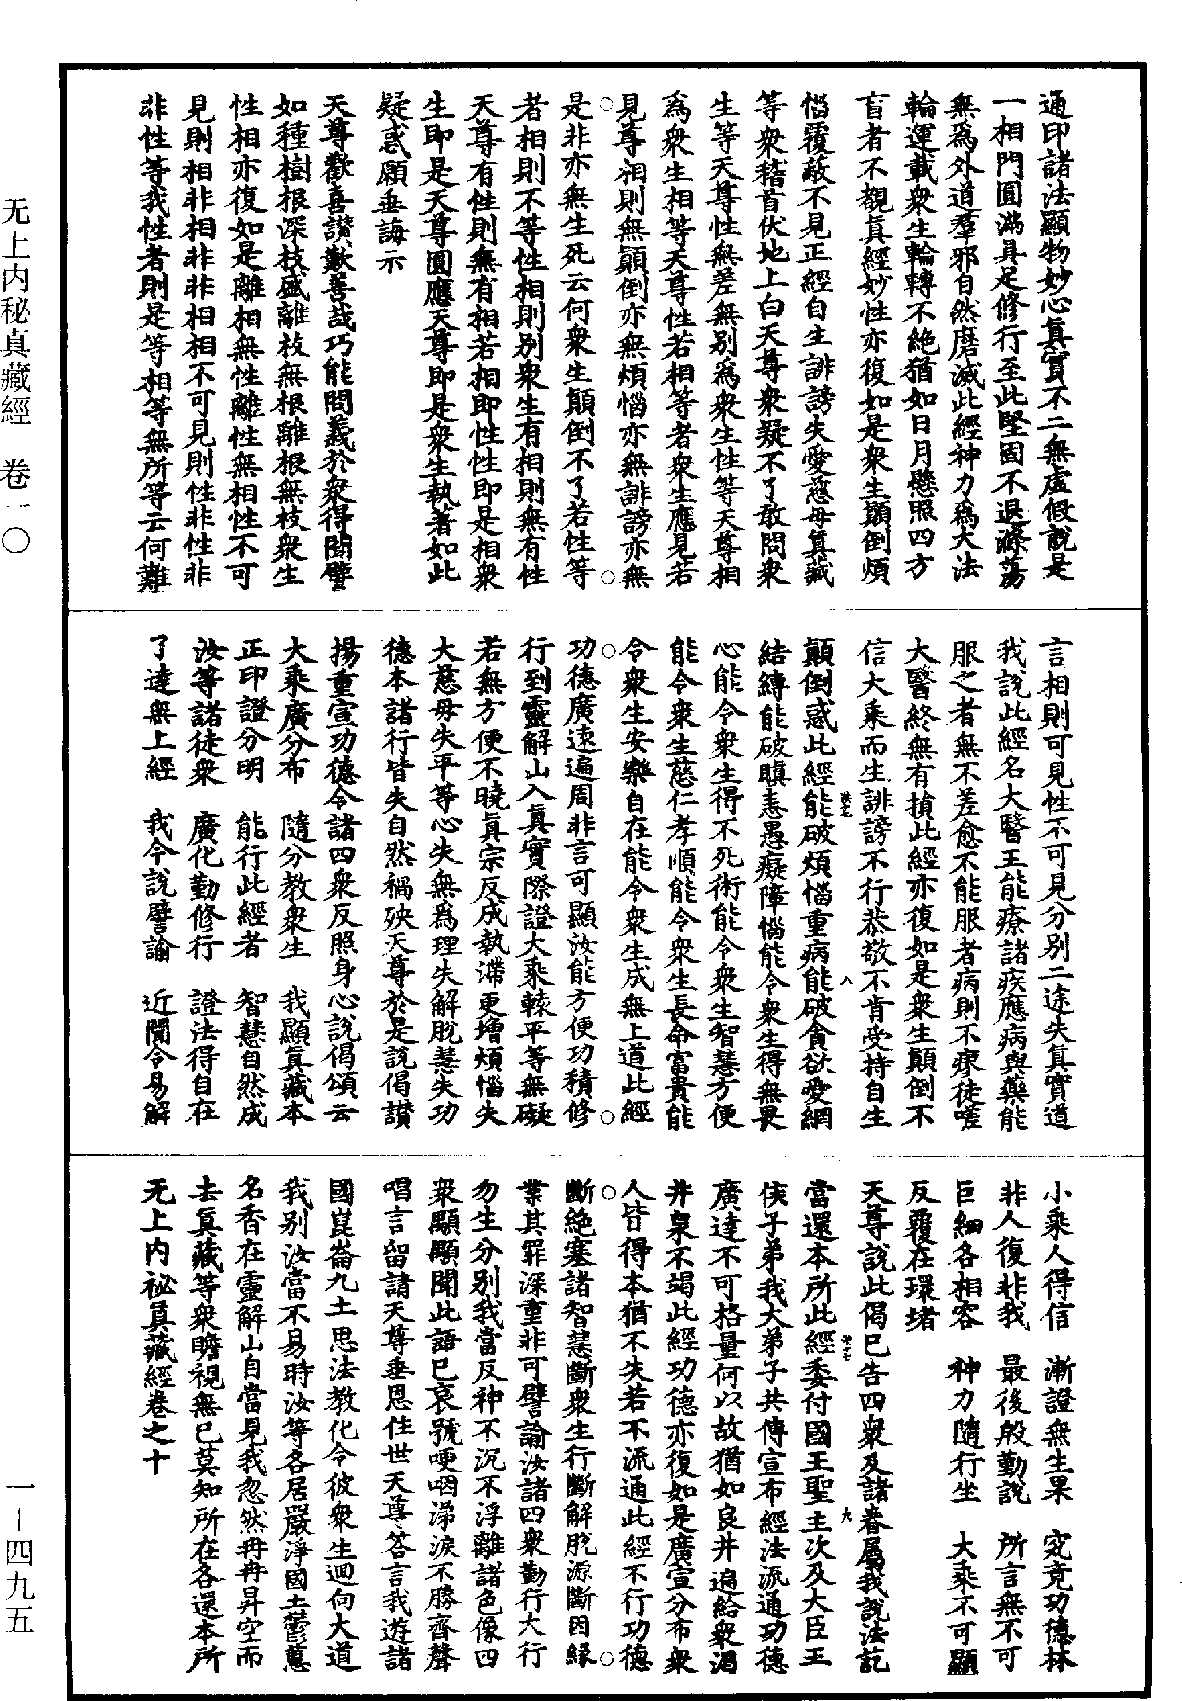 通印諸法顯物妙心真實不二無虛假說是
一相門圓滿具足修行至此堅固不退滌蕩
無為外道羣邪自然磨滅此經神力為大法
輪運載衆生輪轉不絕猶如日月懸照四方
盲者不覩真經妙性亦復如是衆生顛倒煩
惱覆蔽不見正經自生誹謗失愛慈母真藏
等衆稽首伏地上白天尊衆疑不了敢問衆
生等天尊性無差無別為衆生性等天尊相
為衆生相等天尊性若相等者衆生應見若
見尊相則無顛倒亦無煩惱亦無誹謗亦無
是非亦無生死云何衆生顛倒不了若性等
者相則不等性相則別衆生有相則無有性
天尊有性則無有相若相即性性即是相衆
生即是天尊圓應天尊即是衆生執著如此
疑惑願垂誨示
天尊歡喜讚歎善哉巧能問義於衆得聞譬
如種樹根深枝盛離枝無根離根無枝衆生
性相亦復如是離相無性離性無相性不可
見則相非相非非相相不可見則性非性非
非性等我性者則是等相等無所等云何難
言相則可見性不可見分別二途失真實道
我說此經名大醫王能療諸疾應病與藥能
服之者無不差愈不能服者病則不瘳徒嗟
大醫終無有損此經亦復如是衆生顛倒不
信大乘而生誹謗不行恭敬不肯受持自生
顛倒惑此經能破煩惱重病能破貪欲愛網
結縛能破瞋恚愚癡障惱能令衆生得無畏
心能令衆生得不死術能令衆生智慧方便
能令衆生慈仁孝順能令衆生長命富貴能
令衆生安樂自在能令衆生成無上道此經
功德廣遠遍周非言可顯汝能方便功積修
行到靈解山入真實際證大乘轅平等無礙
若無方便不曉真宗反成執滯更增煩惱失
大慈母失平等心失無為理失解脫慧失功
德本諸行皆失自然禍殃天尊於是說偈讚
揚重宣功德令諸四衆反照身心說偈頌云
大乘廣分布　隨分教衆生　我顯真藏本
正印證分明　能行此經者　智慧自然成
汝等諸徒衆　廣化勤修行　證法得自在
了達無上經　我今說譬諭　近聞令易解
小乘人得信　漸證無生果　究竟功德林
非人復非我　最後殷勤說　所言無不可
巨細各相容　神力隨行坐　大乘不可顯
反覆在環堵
天尊說此偈已告四衆及諸眷屬我說法訖
當還本所此經委付國王聖主次及大臣王
侯子弟我大弟子共傳宣布經法流通功德
廣達不可格量何以故猶如良井遍給衆渴
井泉不竭此經功德亦復如是廣宣分布衆
人皆得本猶不失若不流通此經不行功德
斷絕塞諸智慧斷衆生行斷解脫源斷因緣
業其罪深重非可譬諭汝諸四衆勤行大行
勿生分別我當反神不沉不浮離諸色像四
衆顒顒聞此語已哀號哽咽涕淚不勝齊聲
唱言留請天尊垂恩住世天尊答言我遊諸
國崑崙九土思法教化令彼衆生迴向大道
我別汝當不易時汝等各居嚴淨國土鬱蔥
名香在靈解山自當見我忽然冉冉昇空而
去真藏等衆瞻視無已莫知所在各還本所
无上内祕真藏經卷之十
无上内秘真藏經　卷一〇
一—四九五